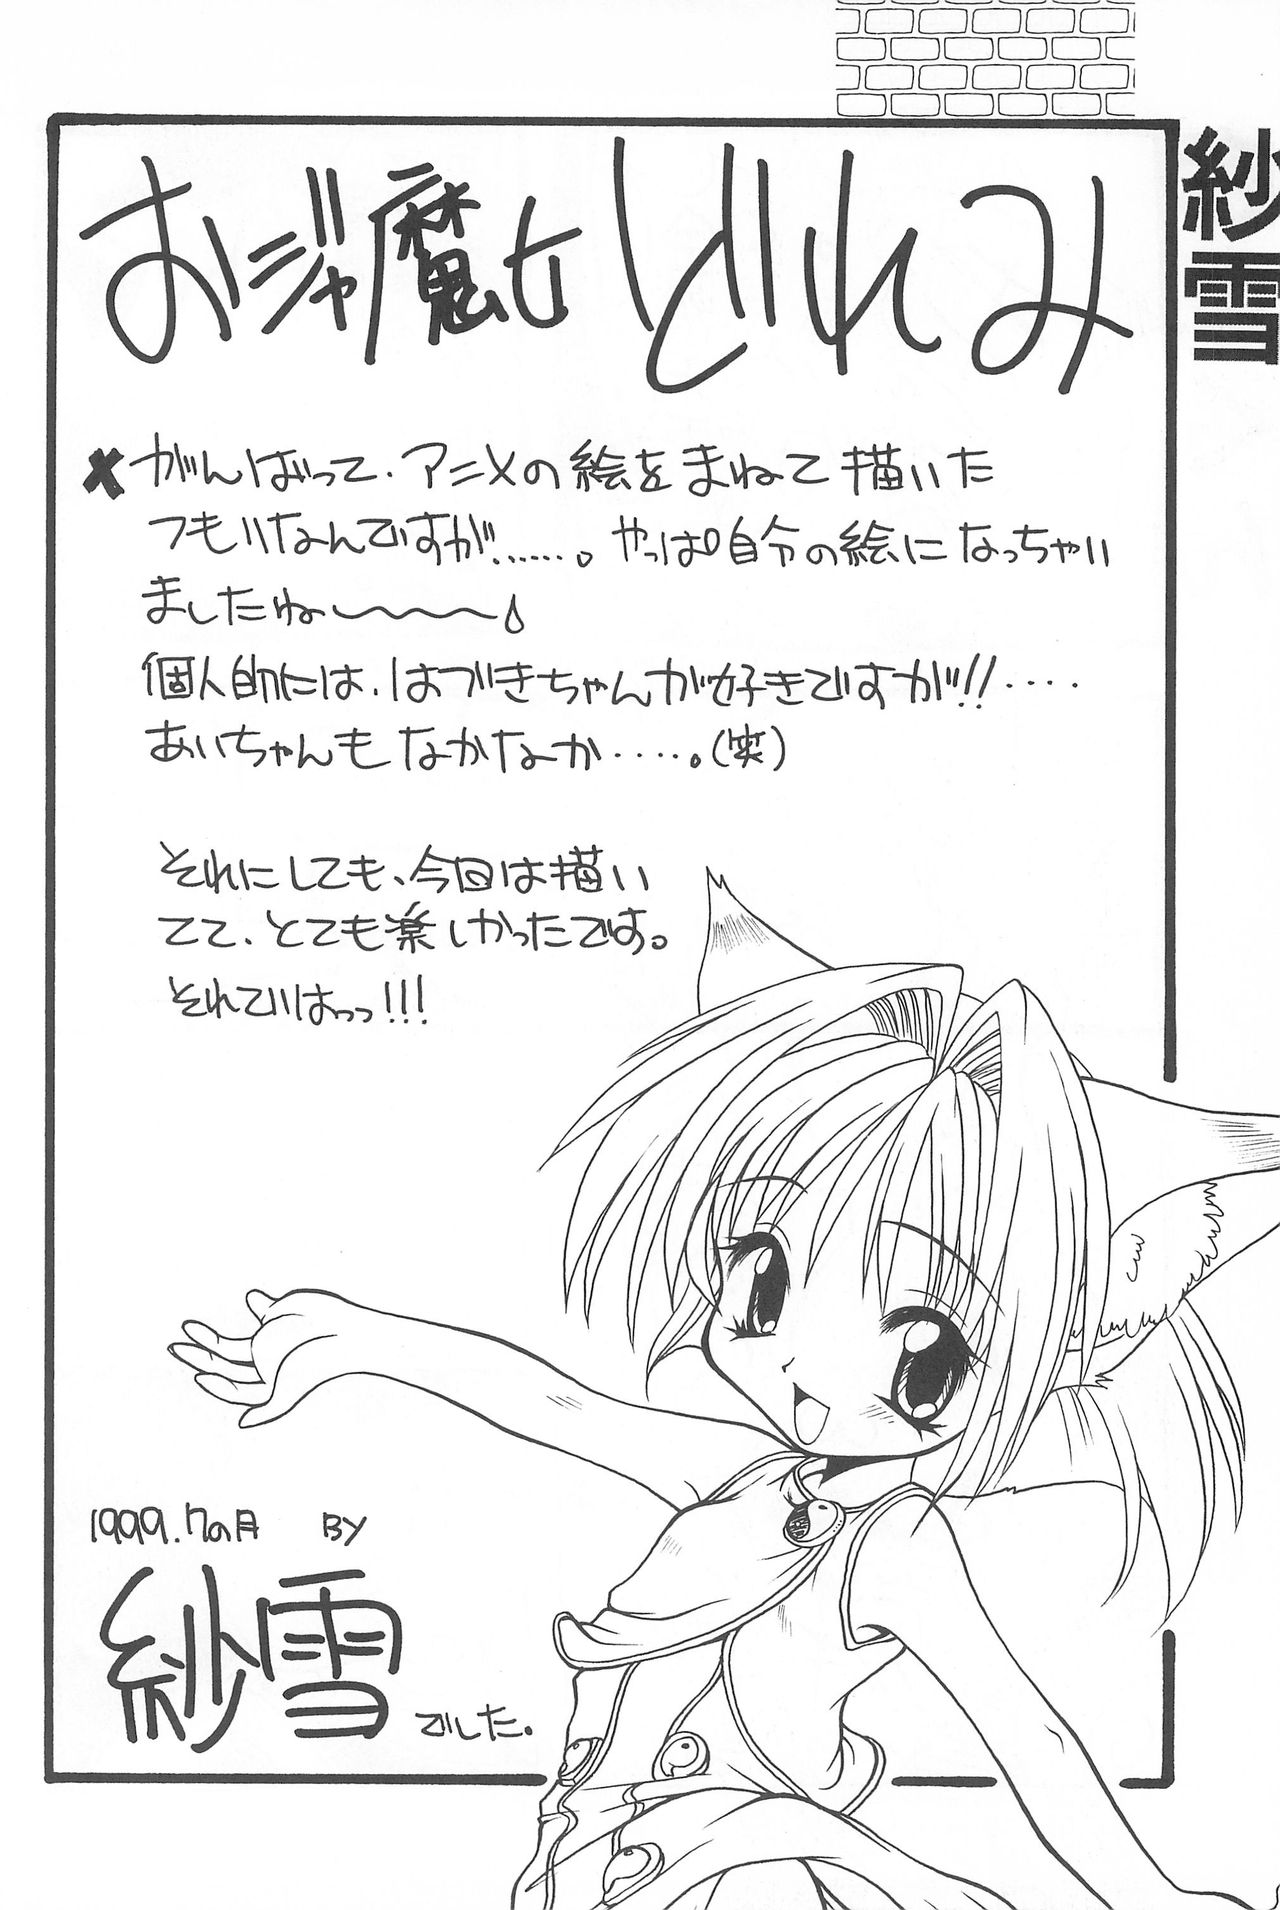 おジャ魔女どれみ
紗雪
✗がんばって、アニメの絵をまねて描いた
つもりなんですが……。やっぱ自分の絵になっちゃい
ましたね〜〜〜
個人的には、はづきちゃんが好きですが!!‥‥
あいちゃんもなかなか‥‥。(笑)
それにしても、今回は描い
てて、とても楽しかったです。
それではっっ!!!
1999.7の月 BY
紗雪
でした。